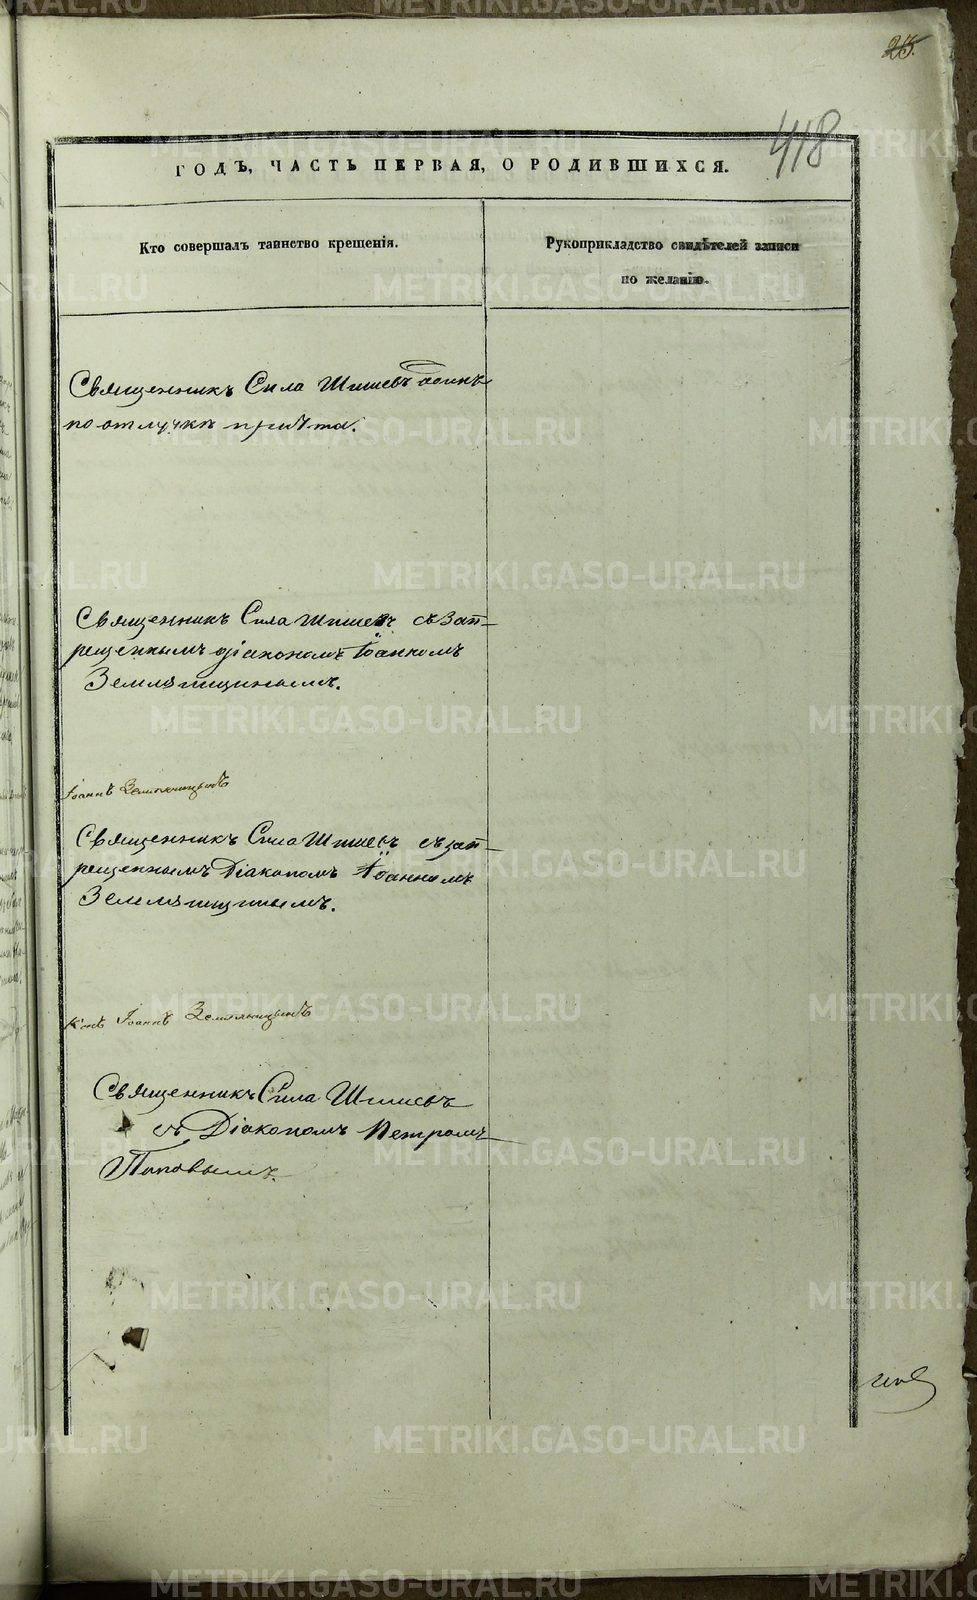 25.
418
ГОДЪ, ЧАСТЬ ПЕРВАЯ, О РОДИВШИХСЯ.
Кто совершалъ таинство крещенія.
Рукоприкладство свидѣтелей записи
по желанію.
Священникъ Сила Шишевъ одинъ
по отлучкѣ причта.
Священникъ Сила Шишевъ съ зап-
рещеннымъ діакономъ Іоанномъ
Земляницинымъ.
Іоаннъ Земляницынъ
Священникъ Сила Шишевъ съ зап-
рещеннымъ Діакономъ Іоанномъ
Земляницинымъ.
Іоаннъ Земляницынъ
Священникъ Сила Шишевъ
съ Діакономъ Петромъ
Поповымъ.
METRIKI.GASO-URAL.RU